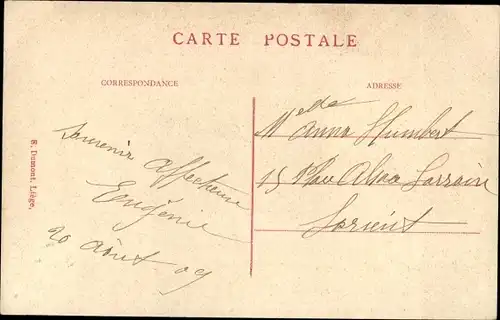 CARTE POSTALE
CORRESPONDANCE
Souvenir affectueux
Eugénie
20 Août 09
ADRESSE
Melle Anna Humbert
15 Place Alsace Lorraine
Lorient
S. Dumont, Liége,